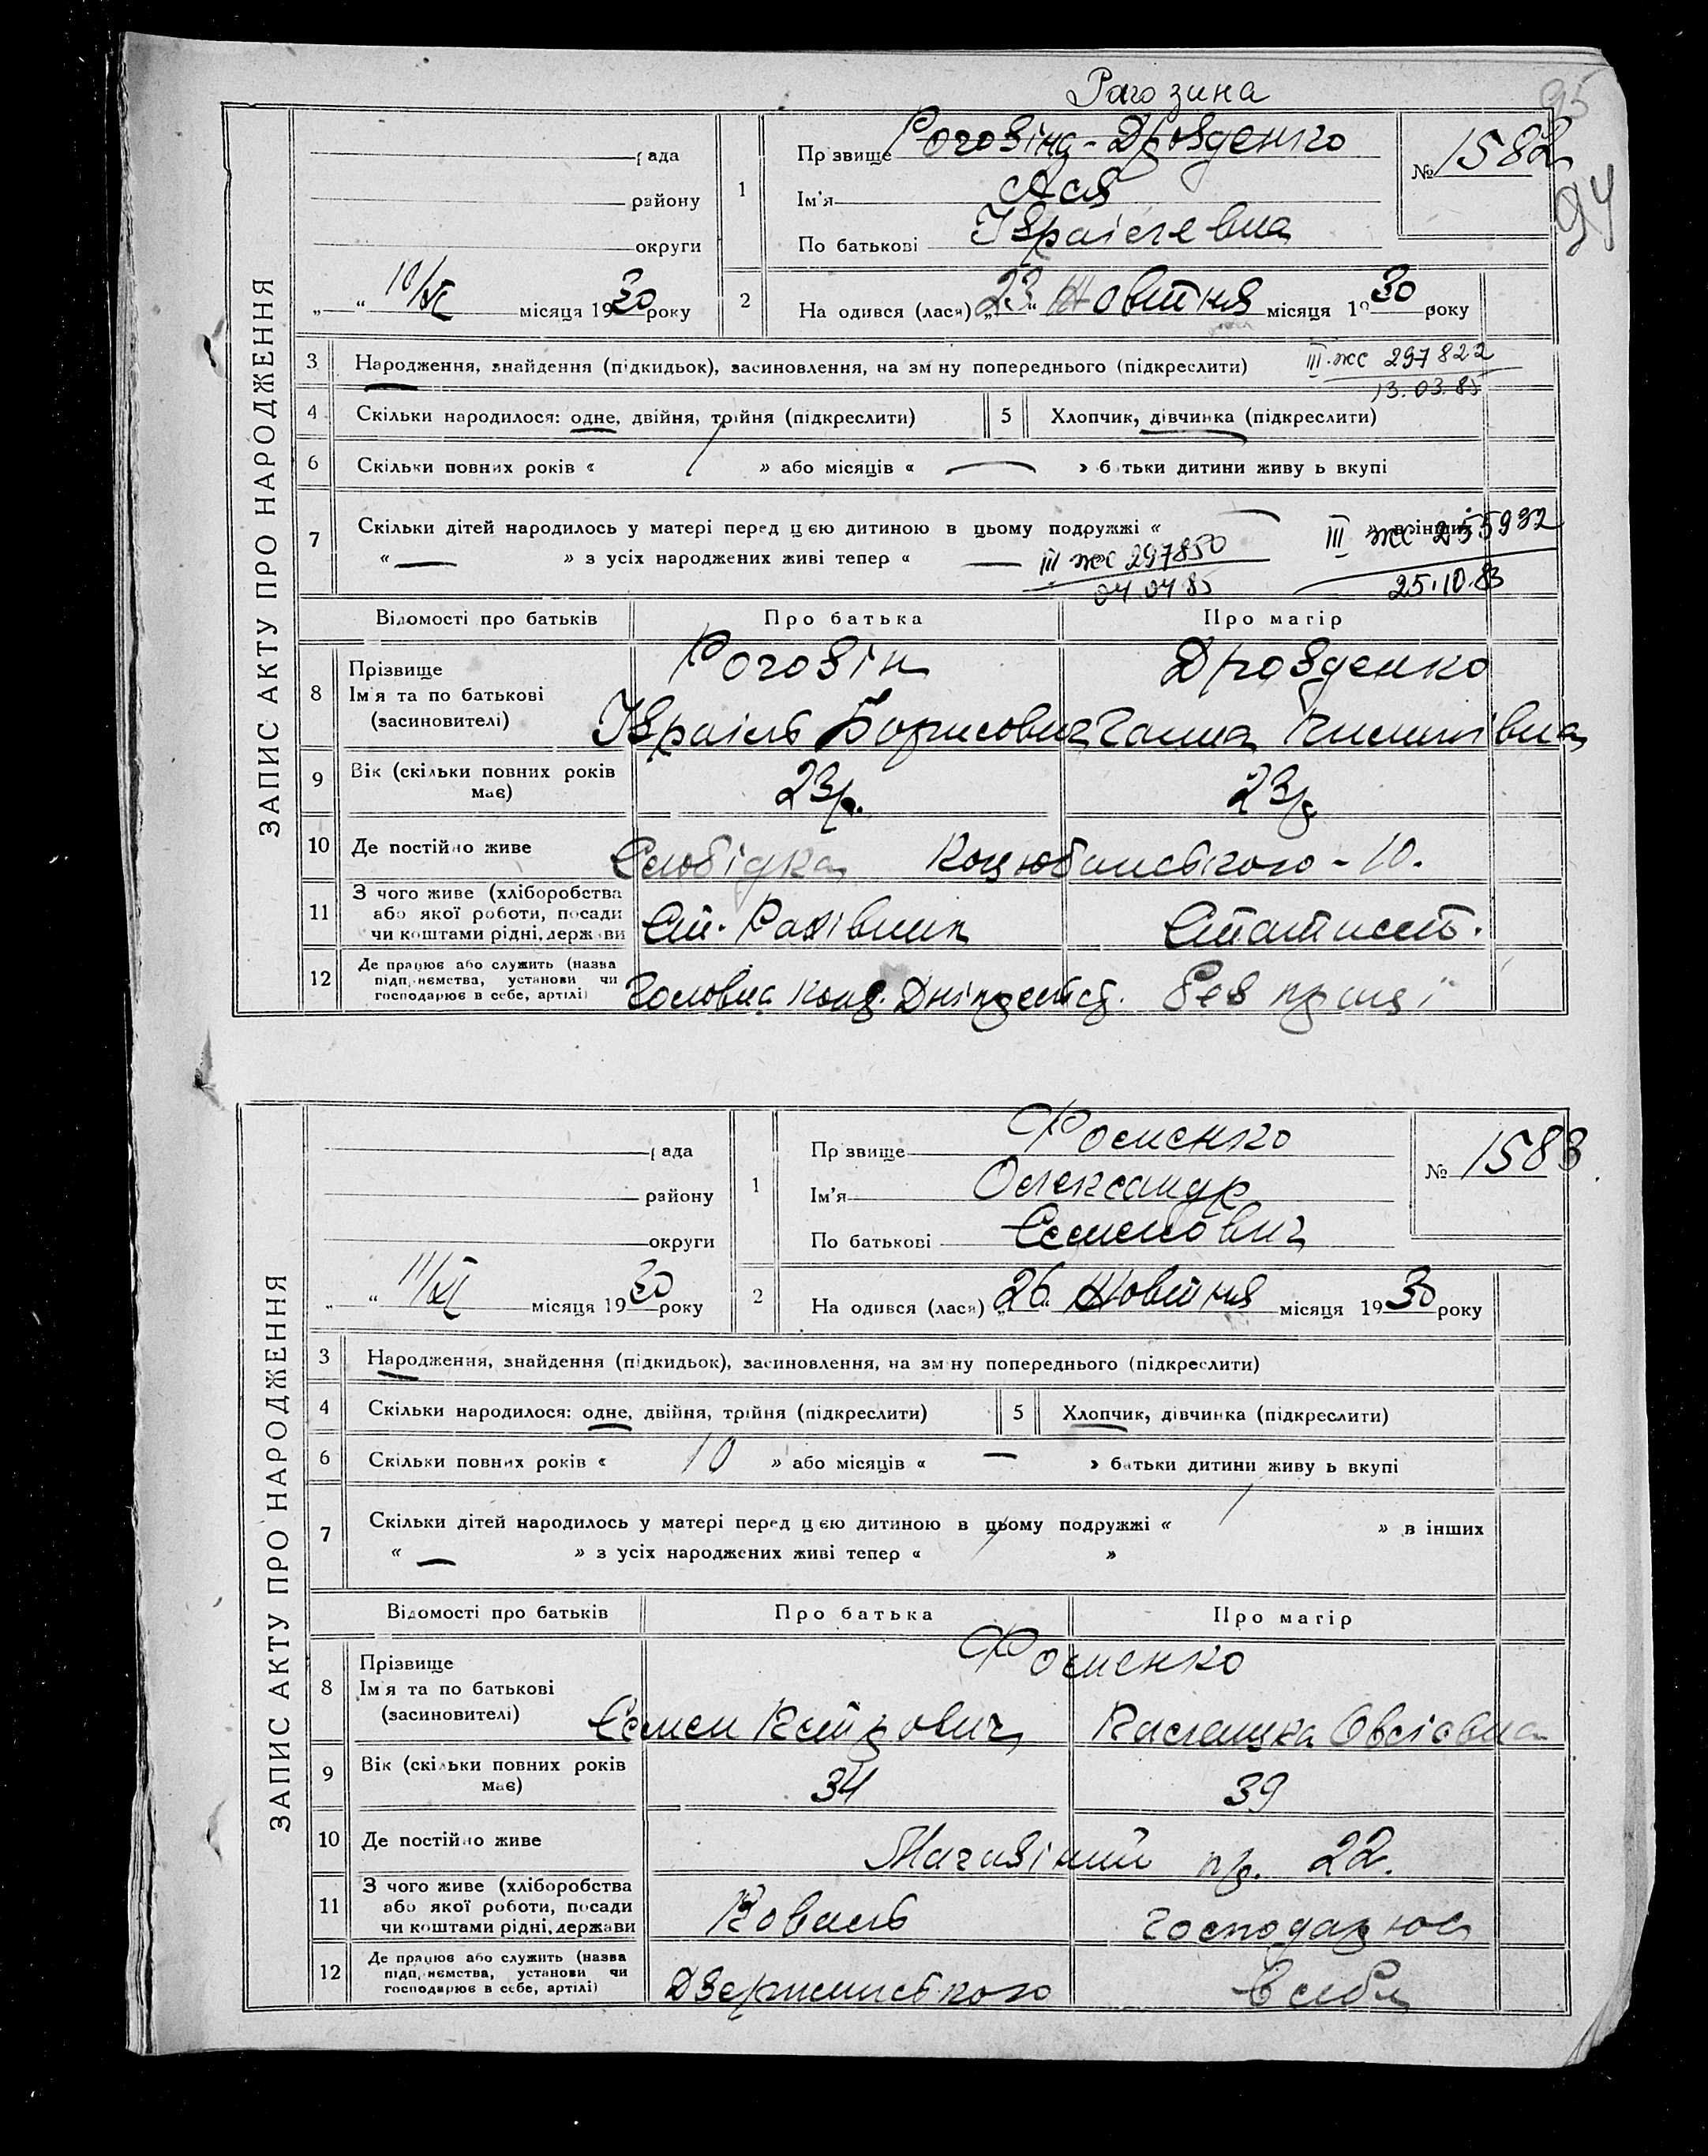 95
94
Рагозина
ЗАПИС АКТУ ПРО НАРОДЖЕННЯ
рада
району
округи
„ “ 10/XI місяця 1930 року
1
Прізвище Роговінд-Дровденко
Ім'я Ася
По батькові Ізраілевна
№ 1582
2
Народився (лася) „23“ Жовтня місяця 1930 року
3 Народження, знайдення (підкидьок), засиновлення, на зміну попереднього (підкреслити)
III-жс 297822
13.03.85
4 Скільки народилося: одне, двійня, трійня (підкреслити) 5 Хлопчик, дівчинка (підкреслити)
6 Скільки повних років « » або місяців « — » батьки дитини живуть вкупі
7 Скільки дітей народилось у матері перед цією дитиною в цьому подружжі « — » в інших
« — » з усіх народжених живі тепер « —
III жс 297850
04 04 85
III жс 255932
25.10.83
Відомості про батьків Про батька Про матір
8 Прізвище
Ім'я та по батькові
(засиновителі)
Роговін Дровденко
Ізраіль Борисович Ганна
9 Вік (скільки повних років має) 23р. 23р.
10 Де постійно живе Слобідка Коцюбинського - 10.
11 З чого живе (хліборобства або якої роботи, посади чи коштами рідні, держави
Ст. Рахівник Статист.
12 Де працює або служить (назва підприємства, установи чи господарює в себе, артілі)
Головна
ЗАПИС АКТУ ПРО НАРОДЖЕННЯ
рада
району
округи
„ — “ 11/XI місяця 1930 року
1
Прізвище Фоменко
Ім'я Олександр
По батькові Семенович
№ 1583
2
Народився (лася) „26“ Жовтня місяця 1930 року
3 Народження, знайдення (підкидьок), засиновлення, на зміну попереднього (підкреслити)
4 Скільки народилося: одне, двійня, трійня (підкреслити) 5 Хлопчик, дівчинка (підкреслити)
6 Скільки повних років « 10 » або місяців « — » батьки дитини живуть вкупі
7 Скільки дітей народилось у матері перед цією дитиною в цьому подружжі « » в інших
« — » з усіх народжених живі тепер « »
Відомості про батьків Про батька Про матір
8 Прізвище
Ім'я та по батькові
(засиновителі)
Фоменко
Семен Петрович
9 Вік (скільки повних років має) 34 39
10 Де постійно живе пр. 22.
11 З чого живе (хліборобства або якої роботи, посади чи коштами рідні, держави
Коваль господарює
12 Де працює або служить (назва підприємства, установи чи господарює в себе, артілі)
Дзержинського в себе